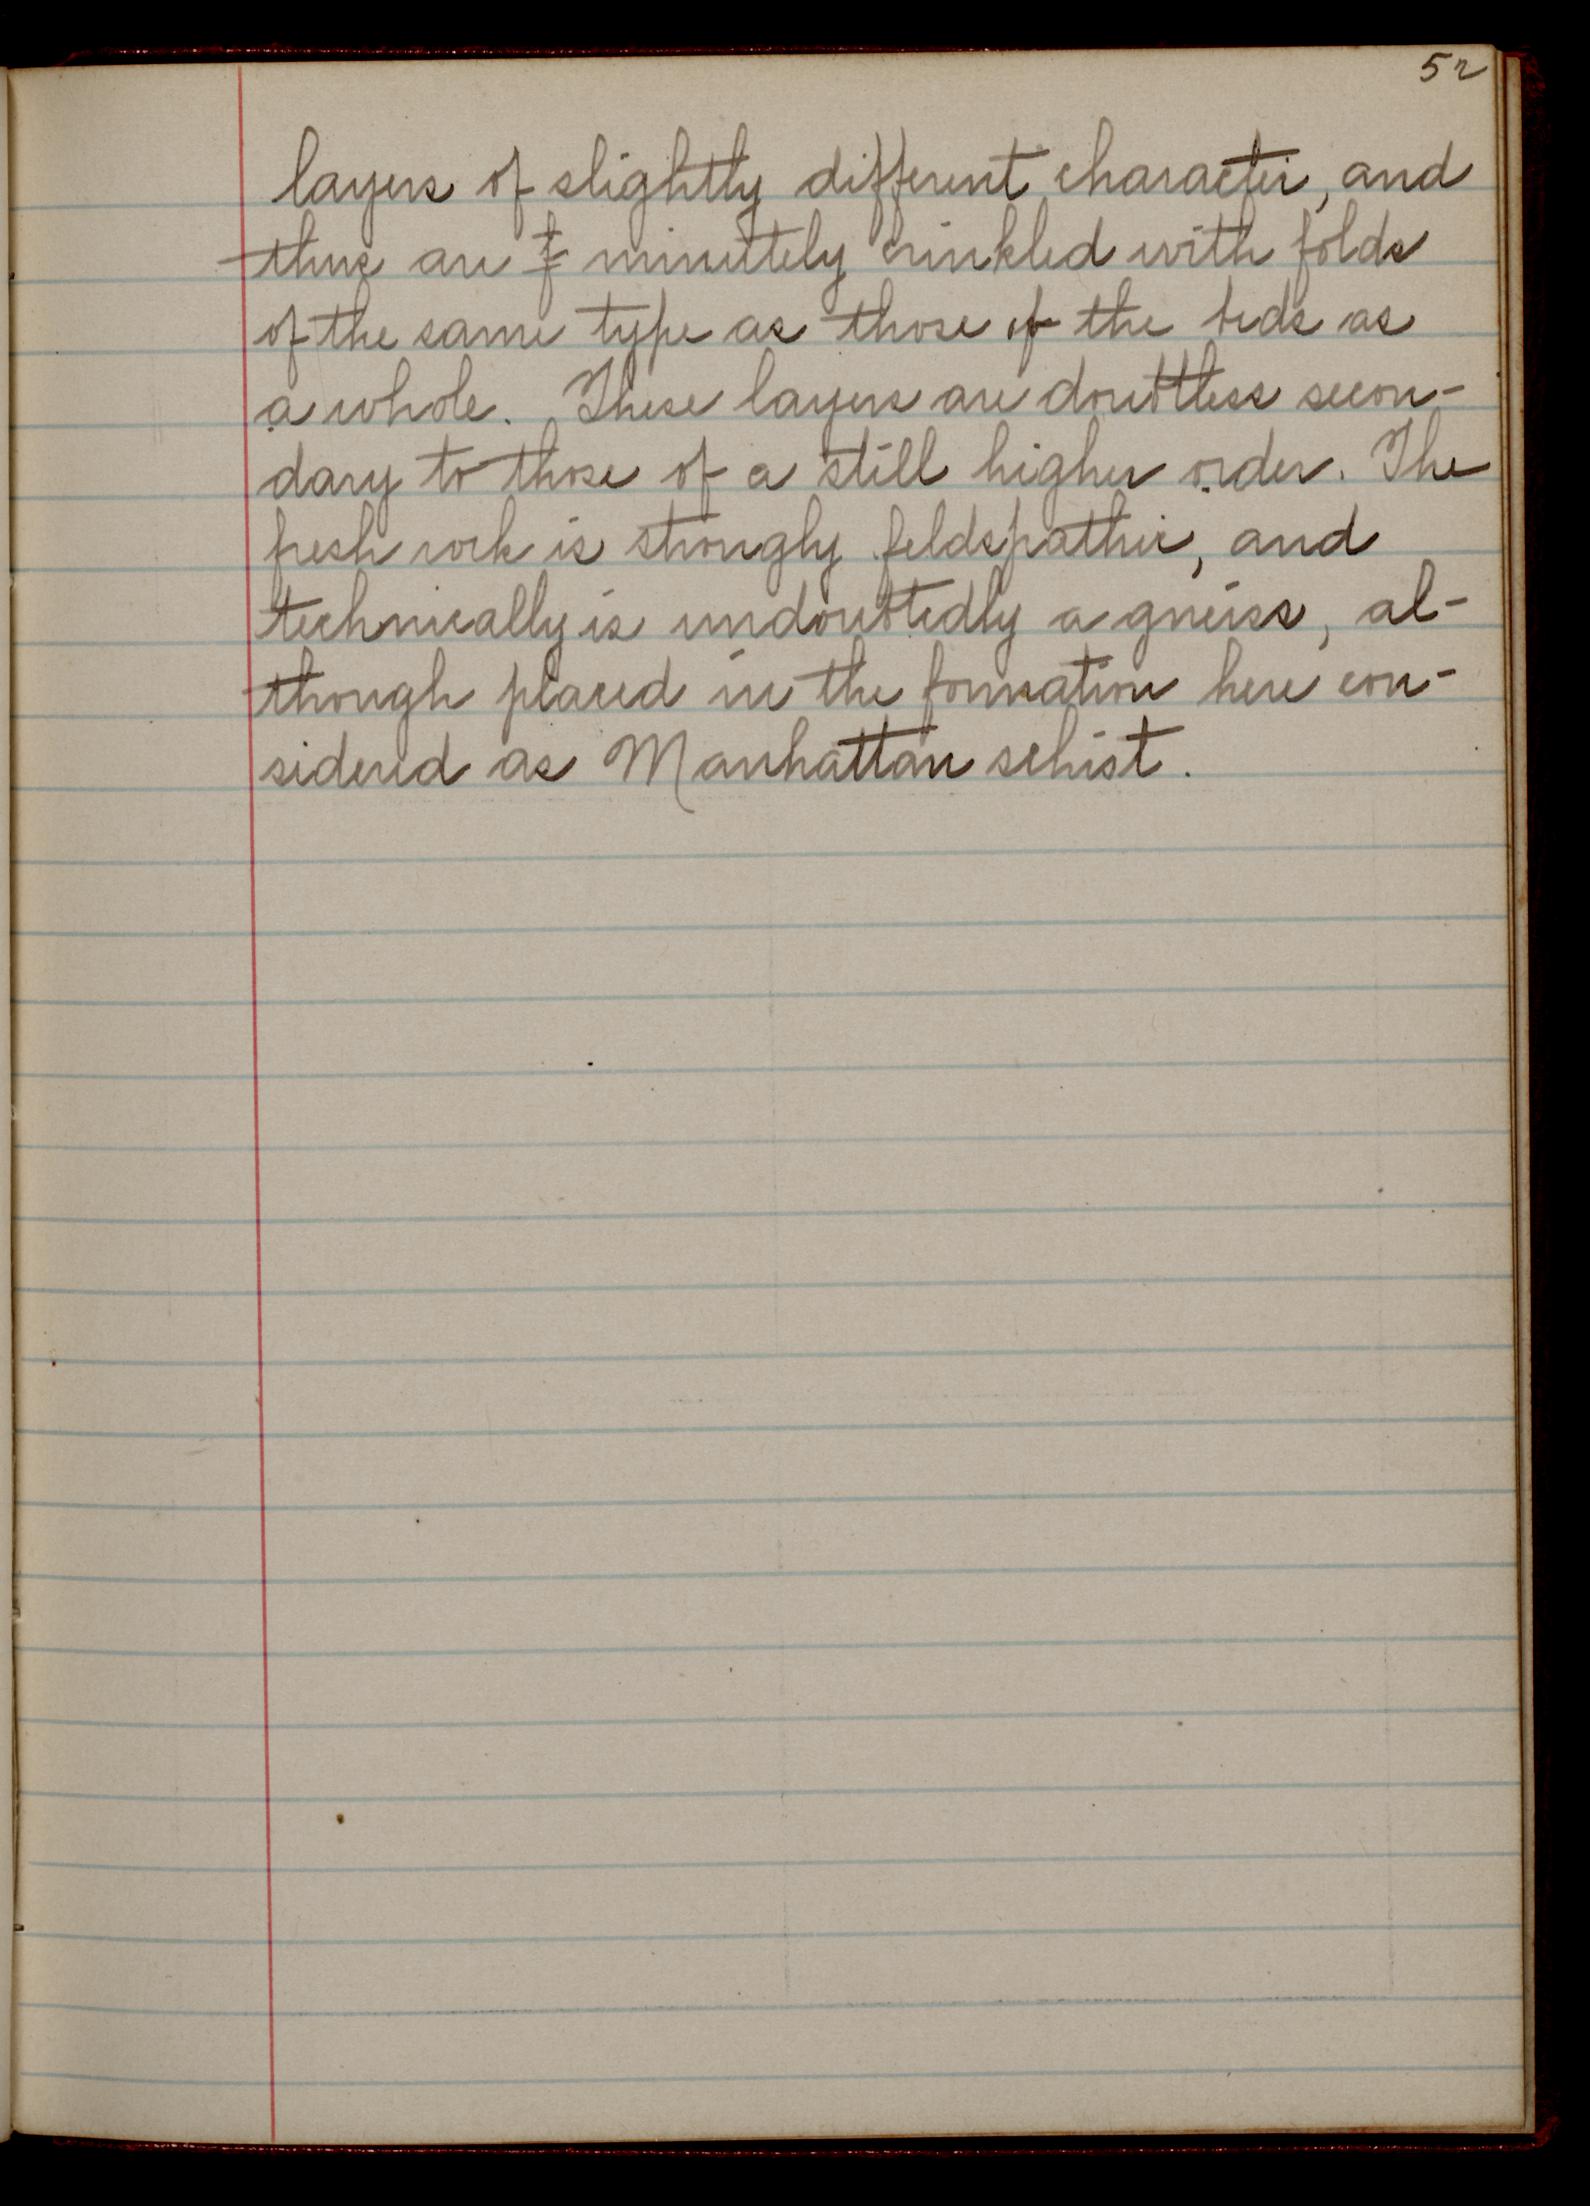 52
layers of slightly different character, and
thus are minutely crinkled with folds
of the same type as those of the beds as
a whole. These layers are doubtless secon-
dary to those of a still higher order. The
fresh rock is strongly feldspathic, and
technically is undoubtedly a gneiss, al-
though placed in the formation here con-
sidered as Manhattan schist.